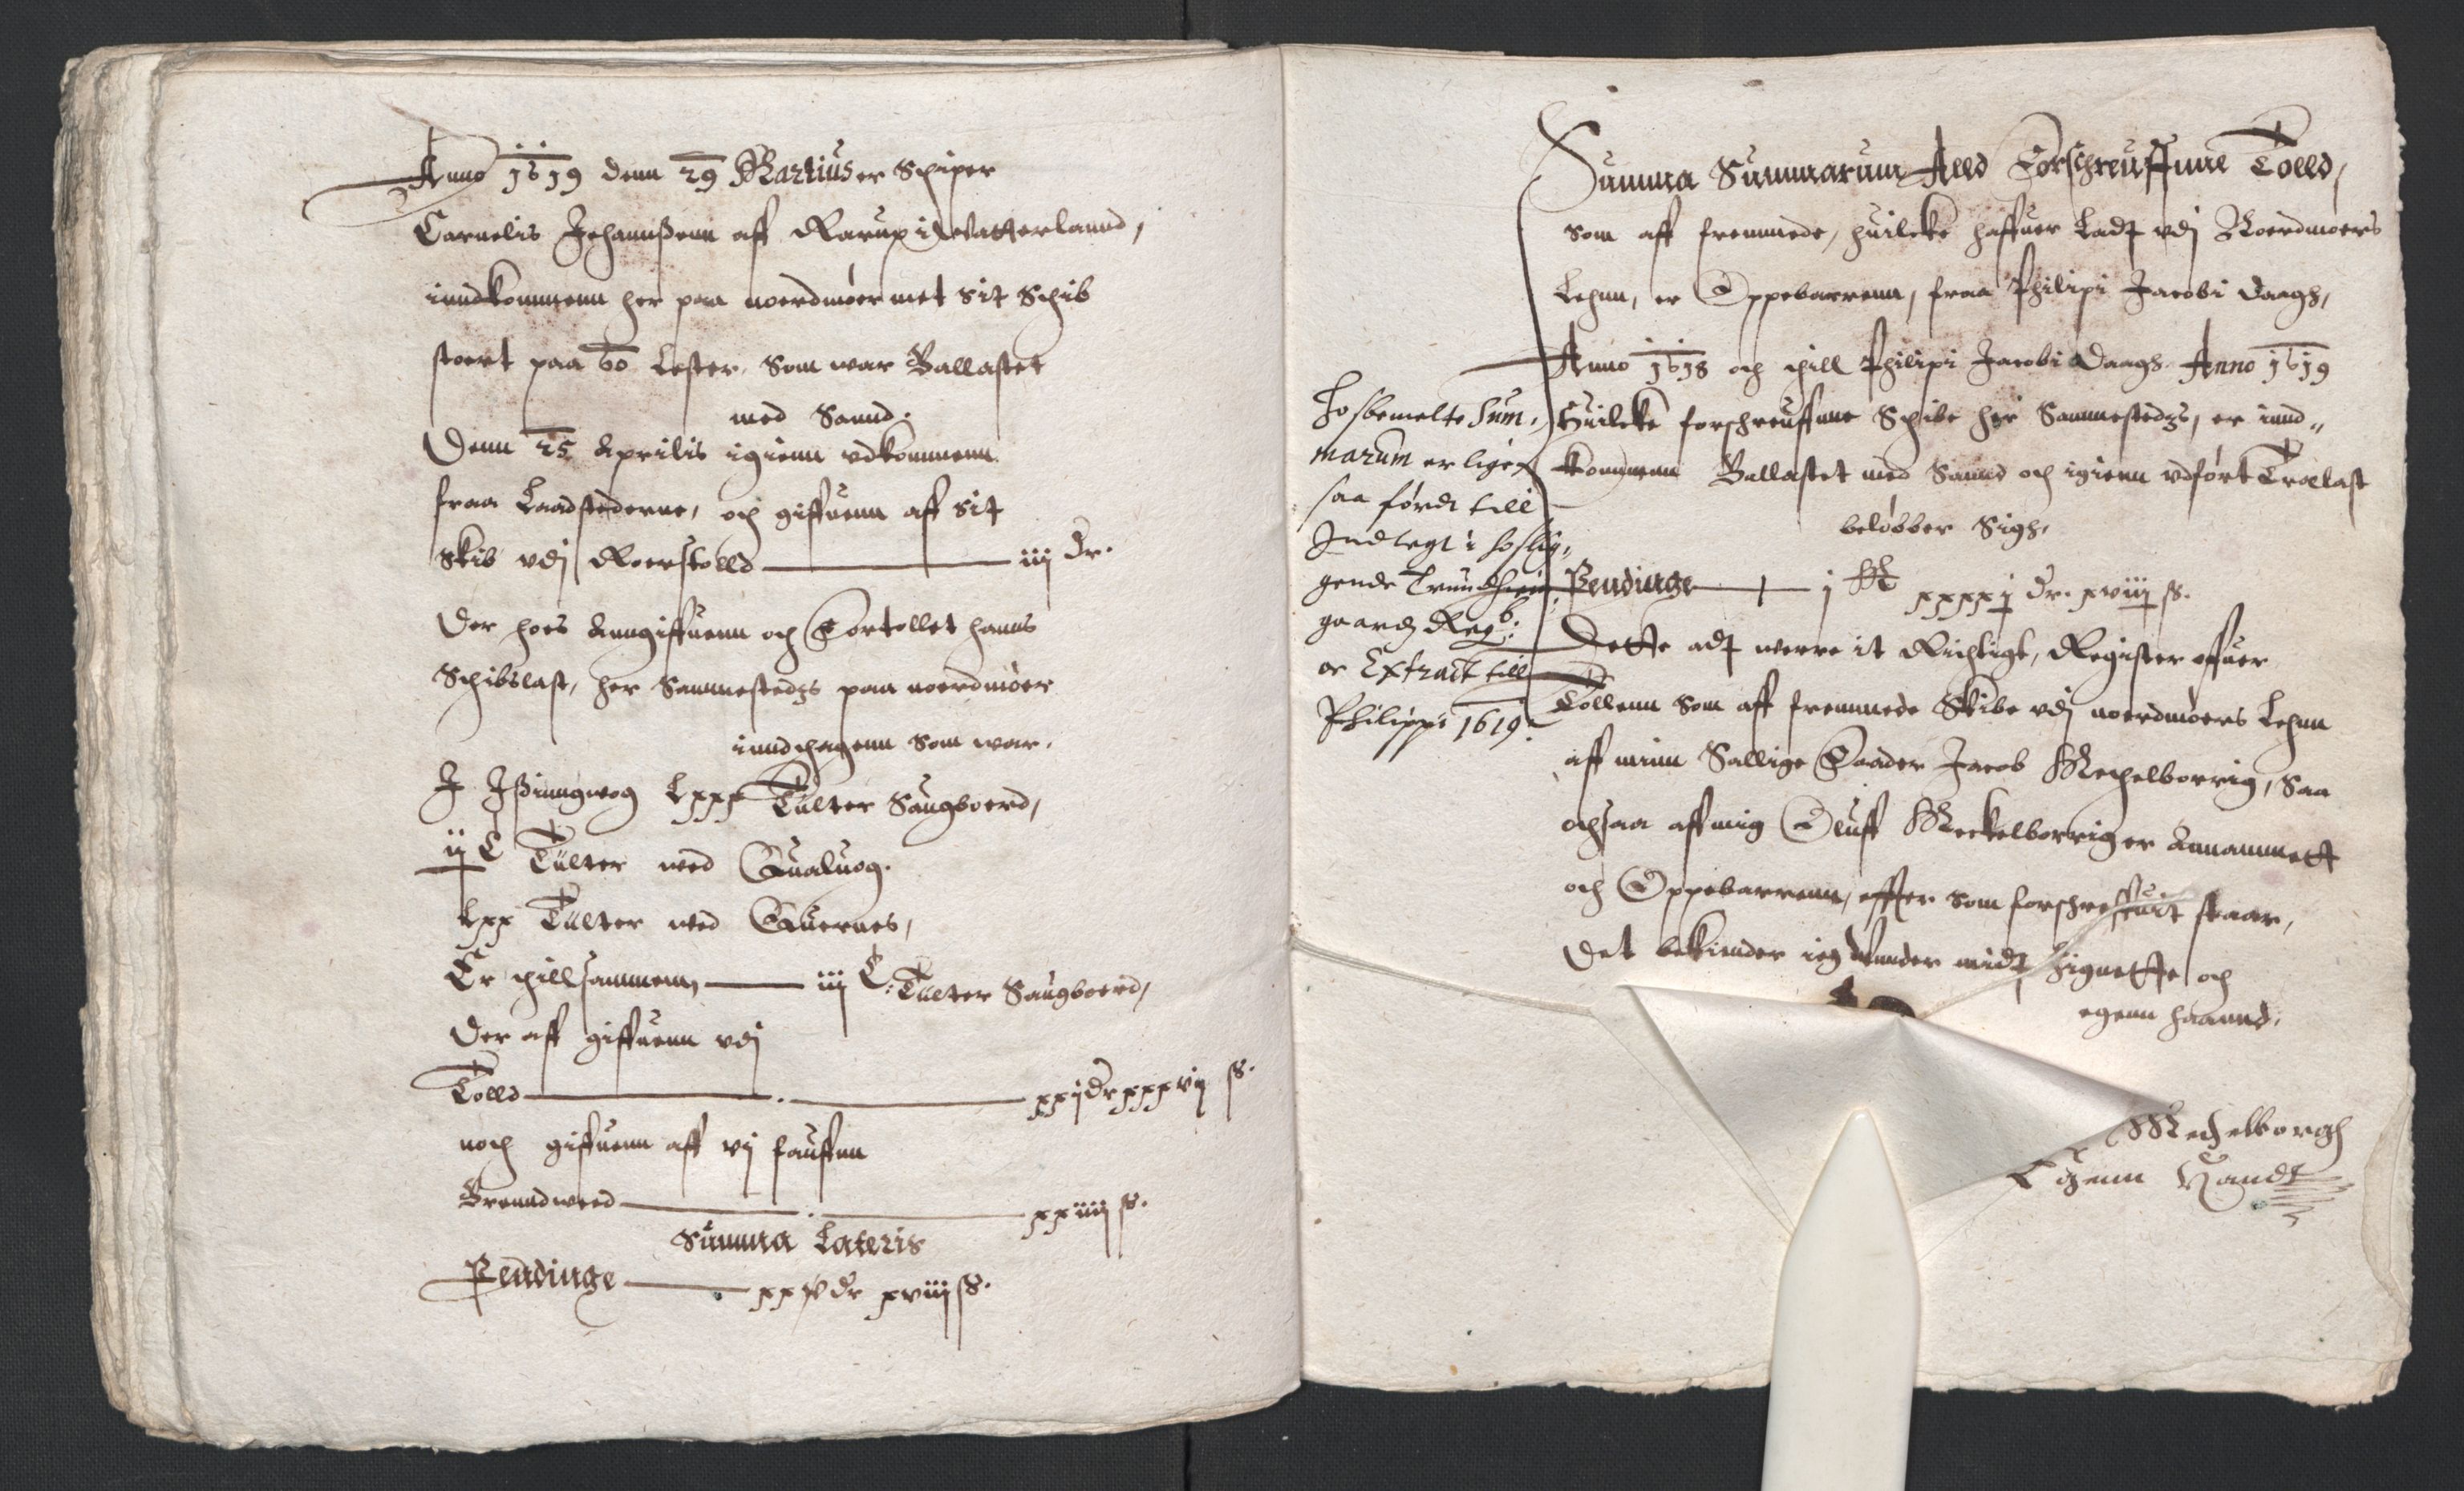 Anno 1619 denn 29 Martius er Schiper
Cornelis Johannßenn aff Rarup i Watterlannd,
inndkommenn her paa noerdmøer met sit Schib
stoert paa 60 Lester, som war Ballastet
med Sannd.
Denn 25 Aprilis igienn vdkommenn
fraa Laadstederne, och giffuenn aff sit
Skib vdj Roerstolld iiij dr.
Der hoes Anngiffuenn och Fortollet hanns
Schibslast, her Sammestedzs paa noerdmøer
inndthagenn som war.
J Jßinngwog Lxxx Tulter Saugboerd,
ij C Tulter wed Qualuog.
Lxx Tulter wed Quernes,
Er thillsammenn iij C: Tulter Saugboerd,
der aff giffuenn vdj
Tolld xxj dr xxxvij ß.
noch giffuenn aff vij fauffnn
Brenndweed xxiiij ß.
Summa Lateris
Pendinge xxv dr xviij ß.
Summa Summarum Alld Forschreuffnne Tolld,
som aff fremmede, huilcke haffuer Ladt vdj Noerdmoers
Lehnn, er Oppebarrenn, fraa Philipi Jacobi daagh,
Anno 1618 och thill Philipi Jacobi daagh Anno 1619
Huilcke forschreuffnne Schibe her Sammestedzs, er innd-
kommenn Ballastet med Sannd och igienn vdført Trælast
beløbber Sigh,
Pendinge j xxxxj dr. xviij ß.
Dette adt werre it Richtigt, Register offuer
Tollenn som aff fremmede Skibe vdj noerdmøers Lehnn
aff minn Sallige Faader Jacob Mechelborrig, saa
ochsaa aff mig Oluff Meckelborrig er Annammett
och Oppebarrenn, effter som forschreffuit staar,
Det bekiender ieg vnnder midt Zignette och
egenn haannd.
Mechelborgh
Egenn Handt
Hosbemelte Sum,
marum er ligeß
saa førdt till
Indtegt i hoslig,
gende Trundhiem
gaardz Regb:
oc Extract till
Philippi 1619.